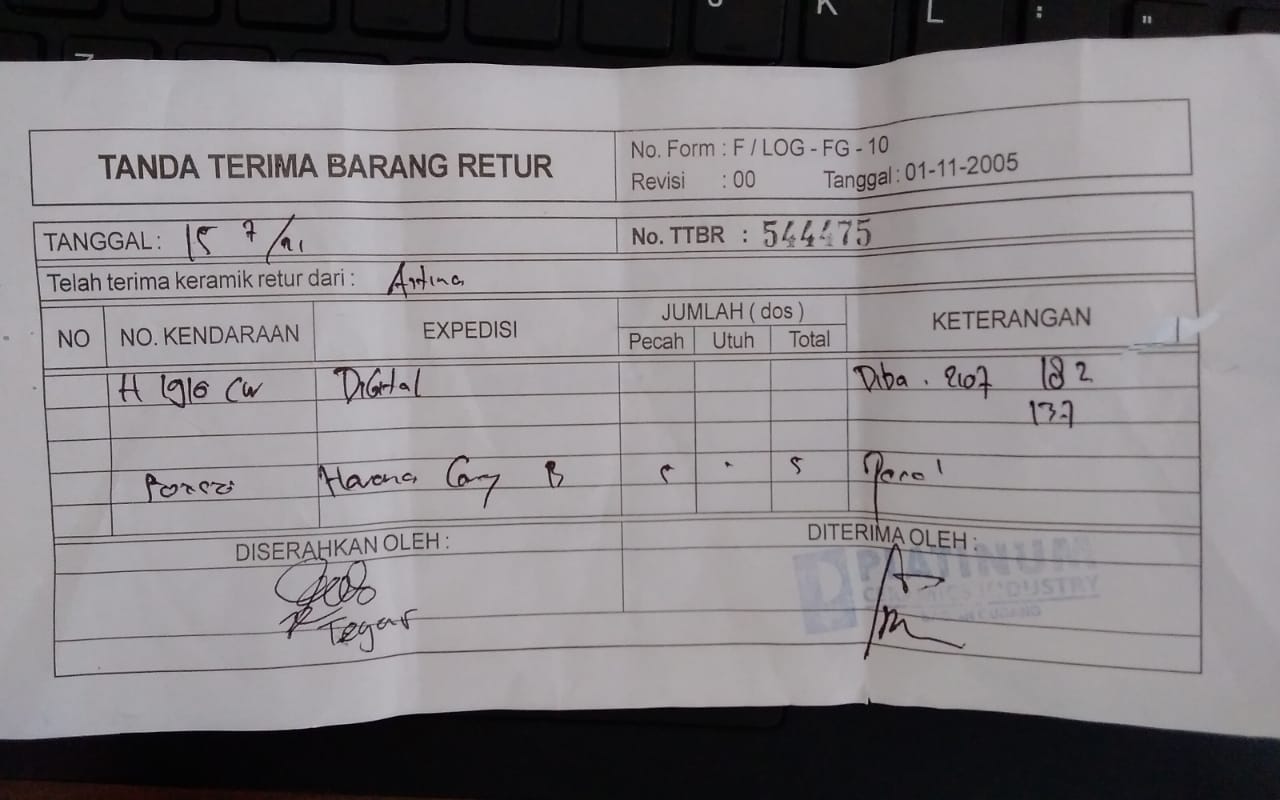 TANDA TERIMA BARANG RETUR
No. Form : F / LOG - FG - 10
Revisi : 00 Tanggal : 01-11-2005
TANGGAL : 15 7/21
No. TTBR : 544475
Telah terima keramik retur dari :
NO NO. KENDARAAN EXPEDISI JUMLAH ( dos ) KETERANGAN
Pecah Utuh Total
H 1916 CW Digital Diba . 2107 182
137
Havana B 5 - 5
DISERAHKAN OLEH : DITERIMA OLEH :
Tegar
PLATINUM
CERAMICS INDUSTRY